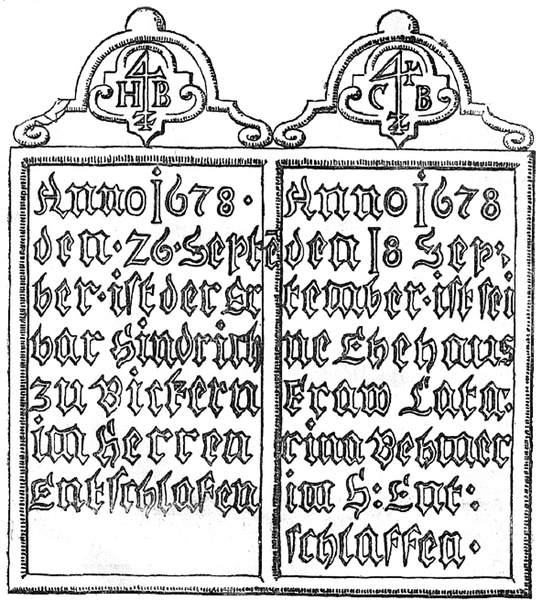 HB
Anno 1678.
den. 26. Septē
ber. ist der Er
bar Hindrich
zu Bickern
im Herren
Entschlafen
CB
Anno 1678
den 18 Sep:
tember. ist sei
ne Ehehaus
Fraw Cata:
rina Vehmer
im H: Ent:
schlaffen.